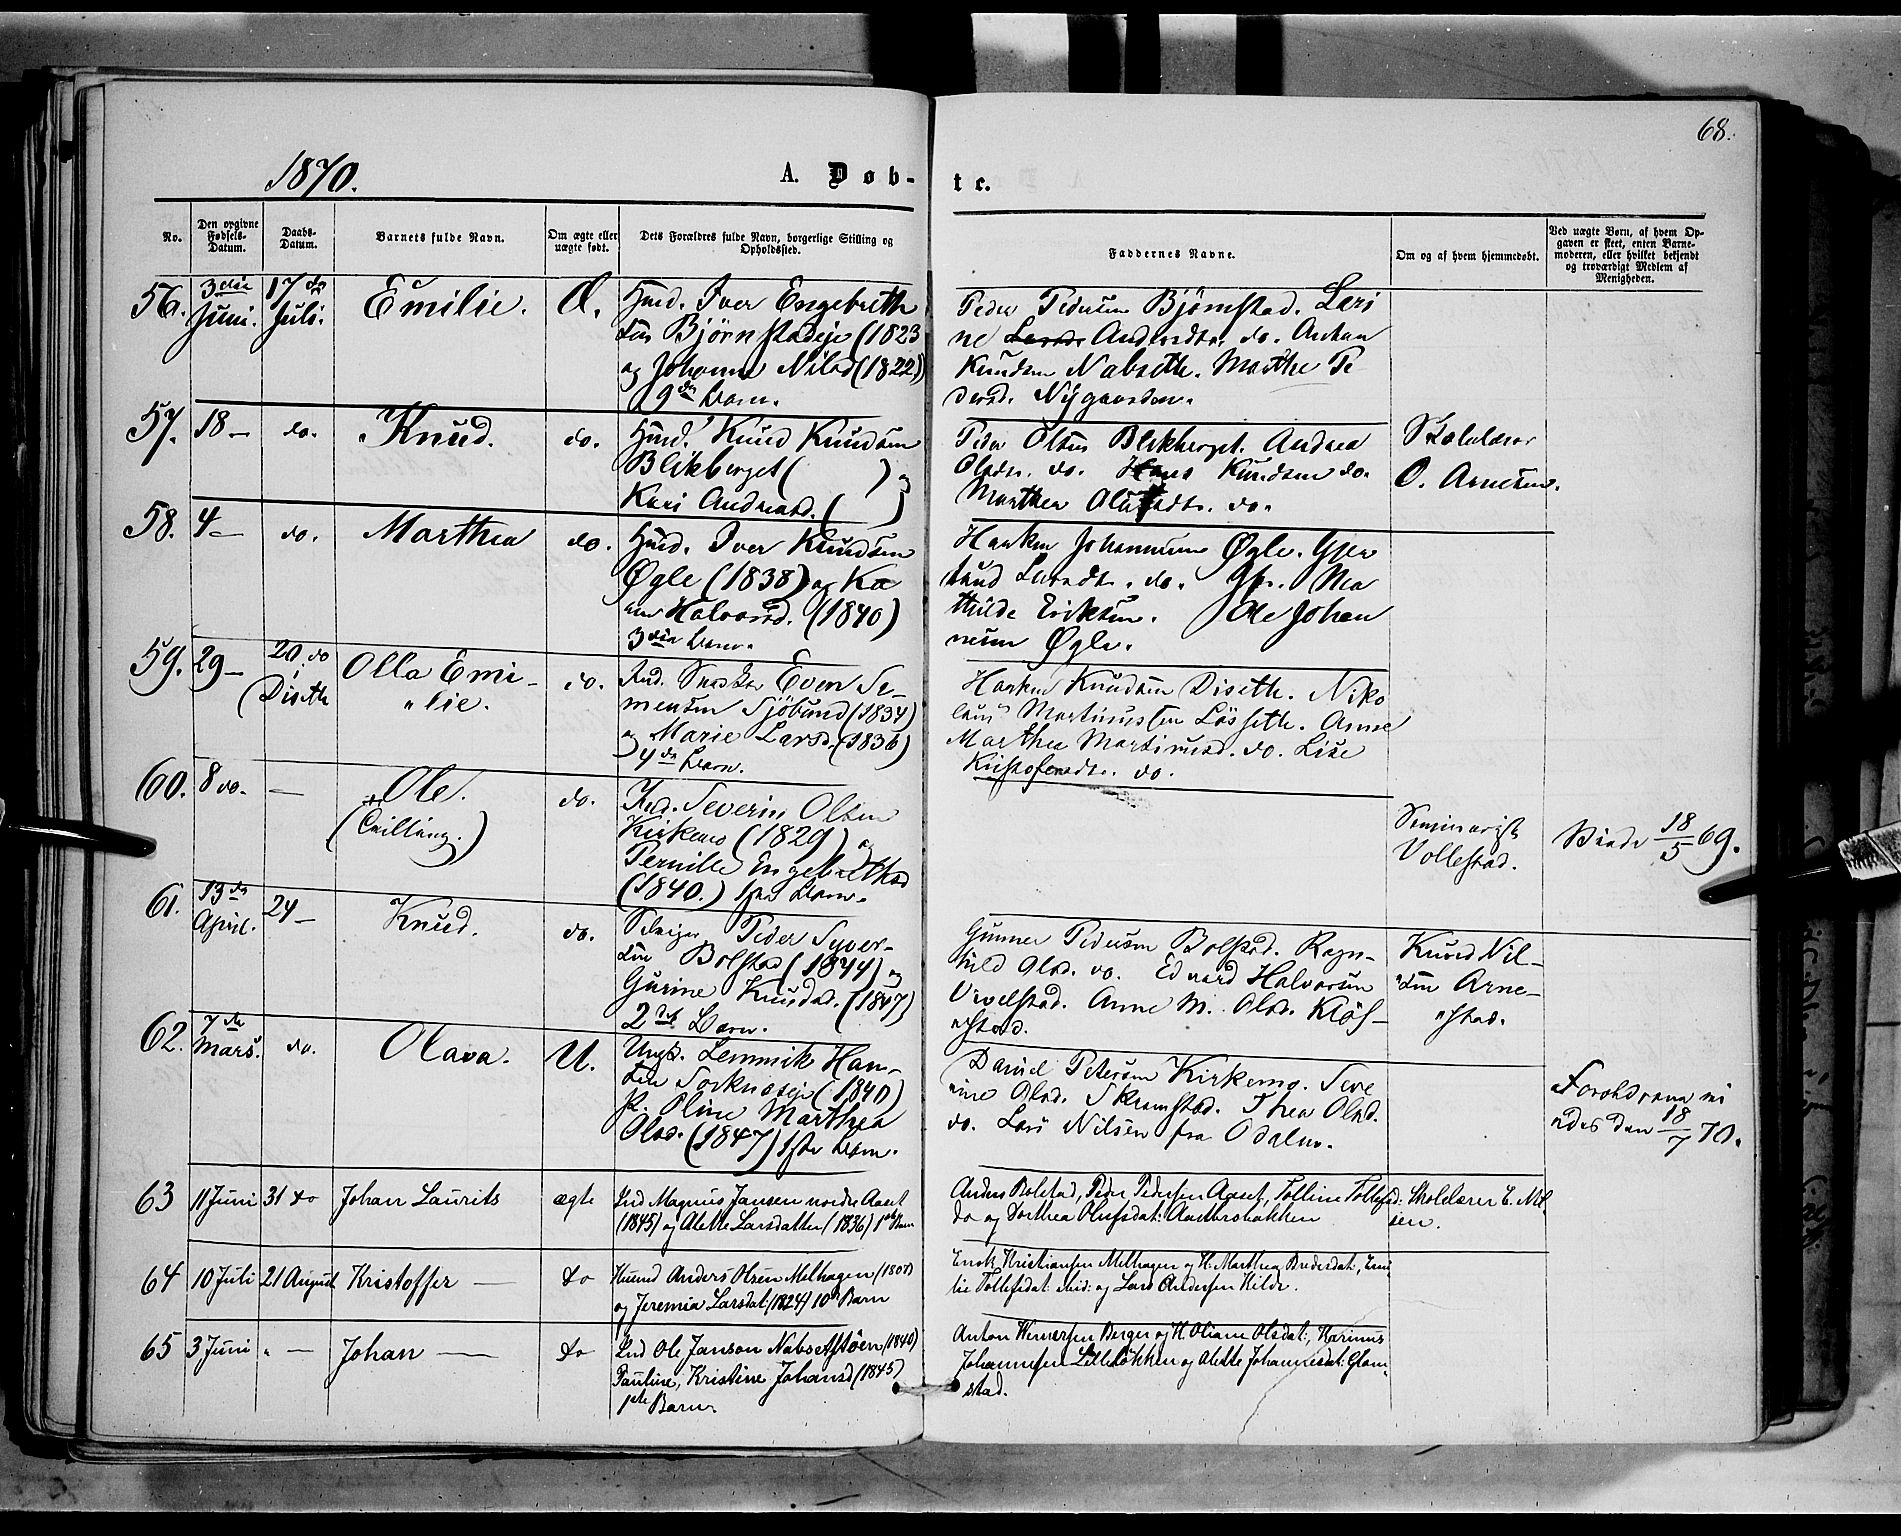 68.
1870.
A. Døb- te.
No.
Den opgivne Fødsels-Datum.
Daabs-Datum.
Barnets fulde Navn.
Om ægte eller uægte født.
Dets Forældres fulde Navn, borgerlige Stilling og Opholdssted.
Faddernes Navne.
Om og af hvem hjemmedøbt.
Ved uægte Børn, af hvem Opgaven er skeet, enten Barnemoderen, eller hvilket bekjendt og troværdigt Medlem af Menigheden.
56. 3die Juni. 17 do Juli. Emilie. Æ.
Iver Engebreth
sen Bjørnstadeje (1823
og Johanne Nilsd (1822)
9de Barn.
Peder Pedersen Bjørnstad. Lari
ne Andersdtr. do. Anton
Knudsen Nabseth. Marthe Pe
dersd. Nygaarden.
57. 18 — do. Knud. do.
Knud Knudsen
Blikberget ( ) og
Kari Andreasd. ( )
Peder Olsen Blikberget. Andrea
Olsdtr. do. Hans Knudsen do.
Marthea do.
Skolelærer
O. Arnesen.
58. 4 — do. Marthea do.
Iver Knudsen
Øgle (1838) og Ka
Halvorsd. (1840)
3die Barn.
Haaken Johannesen Øgle. Gjer
trud Larsdtr. do. Ma
thilde Eriksen. Ole Johan
nesen Øgle.
59. 29 — 20. do Diseth Olla Emi-
„lie. do.
Even Si-
mensen Sjøbund (1834)
og Marie Larsd. (1836)
4de Barn.
Haaken Knudsen Diseth. Niko
lai Martinusen Løsseth. Anne
Marthea Martinusd. do. Lise
Kristofersdtr. do.
60. 8 do. — Ole.
(Tvilling.) do.
Severin Olsen
Kirkemo (1829) og
Pernille Engebrethsd
(1840.) 1ste Barn.
Seminarist
Vollestad.
18/5 69.
61. 13de April. 24 — Knud. do.
Selveier Peder Syver-
sen Bolstad (1844) og
Gurine Knudsd. (1847)
2det Barn.
Gunner Pedersen Bolstad. Ragn-
hild Olsd. do. Edvard Halvorsen
Anne M. Olsd. Kløf-
„stad.
Knud Nil-
„sen Arne-
„stad.
62. 7de Mars. do. Olava. U.
Ungk. Lemmik Han-
sen Sorknæseje (1840)
P. Oline Marthea
Olsd. (1847) 1ste Barn.
Daniel Petersen Kirkemo. Seve
rine Olsd. Skramstad. Thea Olsd.
do. Lars Nilsen fra Odalen.
Forældrene vi
edes den 18/7 70.
63 11 Juni 31 do Johan Laurits ægte
Ind Magnus Jansen nordre Aaset
(1845) og Alette Larsdatter (1836) 1ste Barn
Anders Bolstad, Peder Pedersen Aaset, Tolline Tollefsd:
do og Dorthea Olufsdat:
Skolelærer E. Nil
sen.
64 10 Juli 21 August Kristoffer — do
Huusd Anders Olsen Melhagen (1807)
og Jeremia Larsdat: (1824) 10de Barn
Enok Kristiansen Melhagen og H. Marthea Bredesdat:, Emi
lie Tollefsdat: og Lars Andersen Kilde.
65 3 Juni „ — Johan — do
Ind Ole Janson Nabsetstøen (1840)
Pauline, Kristine Johansd (1845)
1ste Barn
Anton Wernersen Berger og H. Oliane Olsdat:, Karinus
Johannesen Lilleløkken og Alette Johannesdat: Glom-
stad.